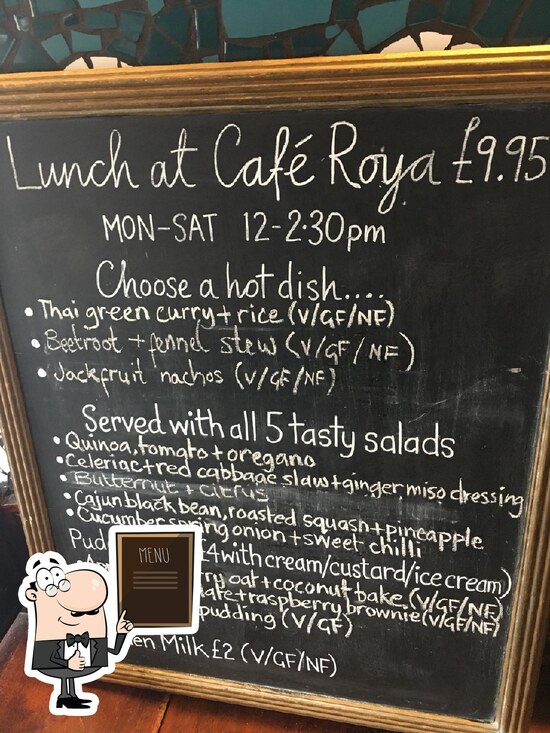 Lunch at Café Roya £9.95
MON-SAT 12-2·30pm
Choose a hot dish....
• Thai green curry + rice (V/GF/NF)
• Beetroot + fennel stew (V/GF/NF)
• Jackfruit nachos (V/GF/NF)
Served with all 5 tasty salads
• Quinoa, tomato + oregano
• Celeriac + red cabbage slaw + ginger miso dressing
• Butternut + citrus
• Cajun black bean, roasted squash + pineapple
• Cucumber, spring onion + sweet chilli
4 with cream/custard/ice cream)
oat + coconut bake (V/GF/NF)
+ raspberry brownie (V/GF/NF)
pudding (V/GF)
Milk £2 (V/GF/NF)
MENU